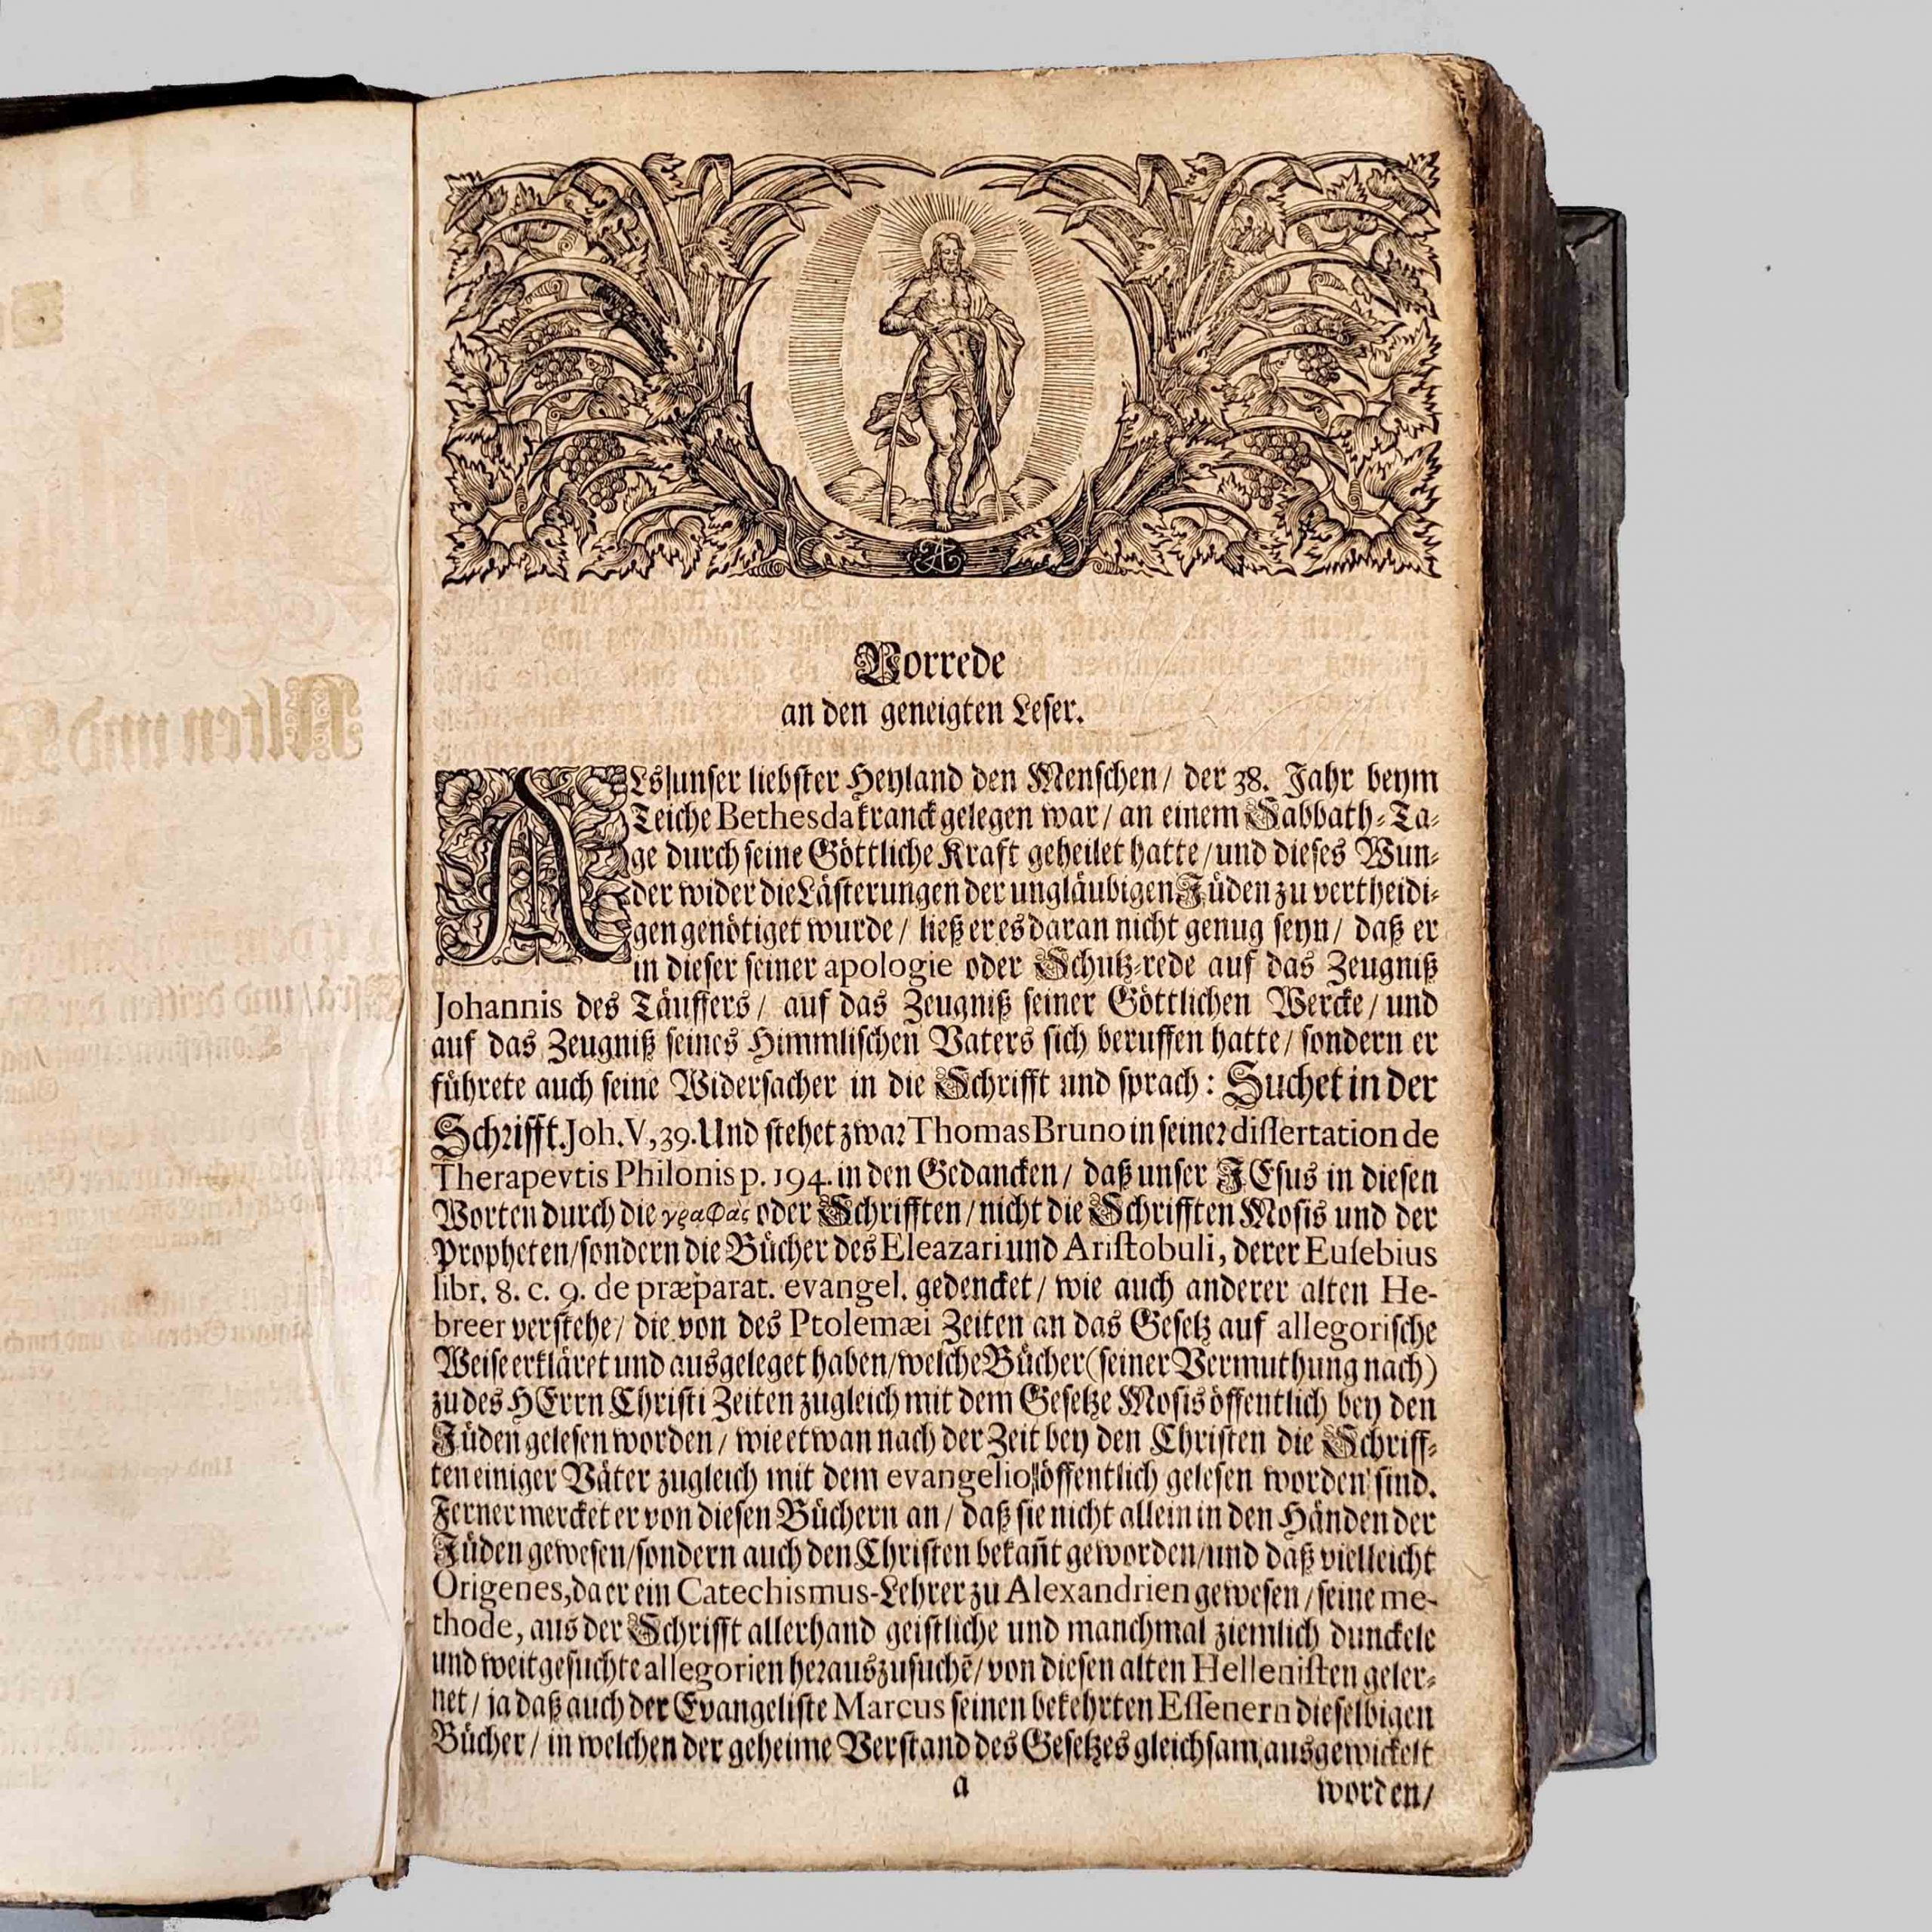 Vorrede
an den geneigten Leser.
ALs unser liebster Heyland den Menschen / der 38. Jahr beym
Teiche Bethesda kranck gelegen war / an einem Sabbath-Ta-
ge durch seine Göttliche Kraft geheilet hatte / und dieses Wun-
der wider die Lästerungen der ungläubigen Jüden zu vertheidi-
gen genötiget wurde / ließ er es daran nicht genug seyn / daß er
in dieser seiner apologie oder Schutz-rede auf das Zeugniß
Johannis des Täuffers / auf das Zeugniß seiner Göttlichen Wercke / und
auf das Zeugniß seines Himmlischen Vaters sich beruffen hatte / sondern er
führete auch seine Widersacher in die Schrifft und sprach: Suchet in der
Schrifft. Joh. V, 39. Und stehet zwar Thomas Bruno in seiner dissertation de
Therapevtis Philonis p. 194. in den Gedancken / daß unser JEsus in diesen
Worten durch die γραφὰς oder Schrifften / nicht die Schrifften Mosis und der
Propheten / sondern die Bücher des Eleazari und Aristobuli, derer Eusebius
libr. 8. c. 9. de præparat. evangel. gedencket / wie auch anderer alten He-
breer verstehe / die von des Ptolemæi Zeiten an das Gesetz auf allegorische
Weise erkläret und ausgeleget haben / welche Bücher (seiner Vermuthung nach)
zu des HErrn Christi Zeiten zugleich mit dem Gesetze Mosis öffentlich bey den
Jüden gelesen worden / wie etwan nach der Zeit bey den Christen die Schriff-
ten einiger Väter zugleich mit dem evangelio öffentlich gelesen worden sind.
Ferner mercket er von diesen Büchern an / daß sie nicht allein in den Händen der
Jüden gewesen / sondern auch den Christen bekañt geworden / und daß vielleicht
Origenes, da er ein Catechismus-Lehrer zu Alexandrien gewesen / seine me-
thode, aus der Schrifft allerhand geistliche und manchmal ziemlich dunckele
und weit gesuchte allegorien herauszusuchē / von diesen alten Hellenisten geler-
net / ja daß auch der Evangeliste Marcus seinen bekehrten Essenern dieselbigen
Bücher / in welchen der geheime Verstand des Gesetzes gleichsam ausgewickelt
a
worden /